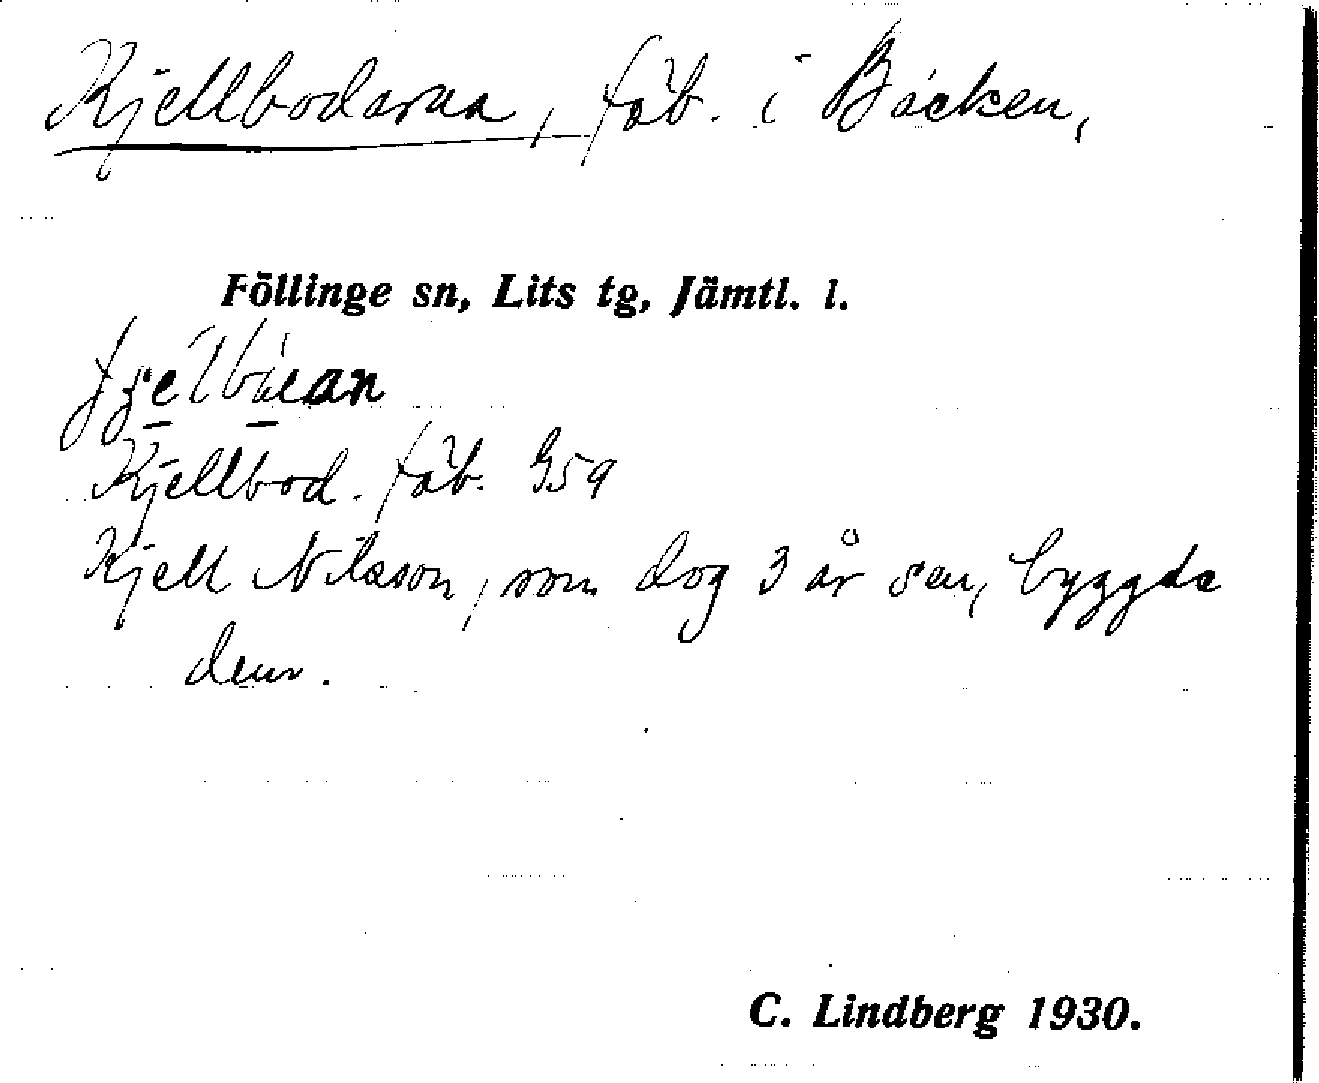 Kjellbodarna, fäb. i Bäcken,
Föllinge sn, Lits tg, Jämtl. l.
Kjellbod. fäb. G59
Kjell Nilsson, som dog 3 år sen, byggde
den.
C. Lindberg 1930.